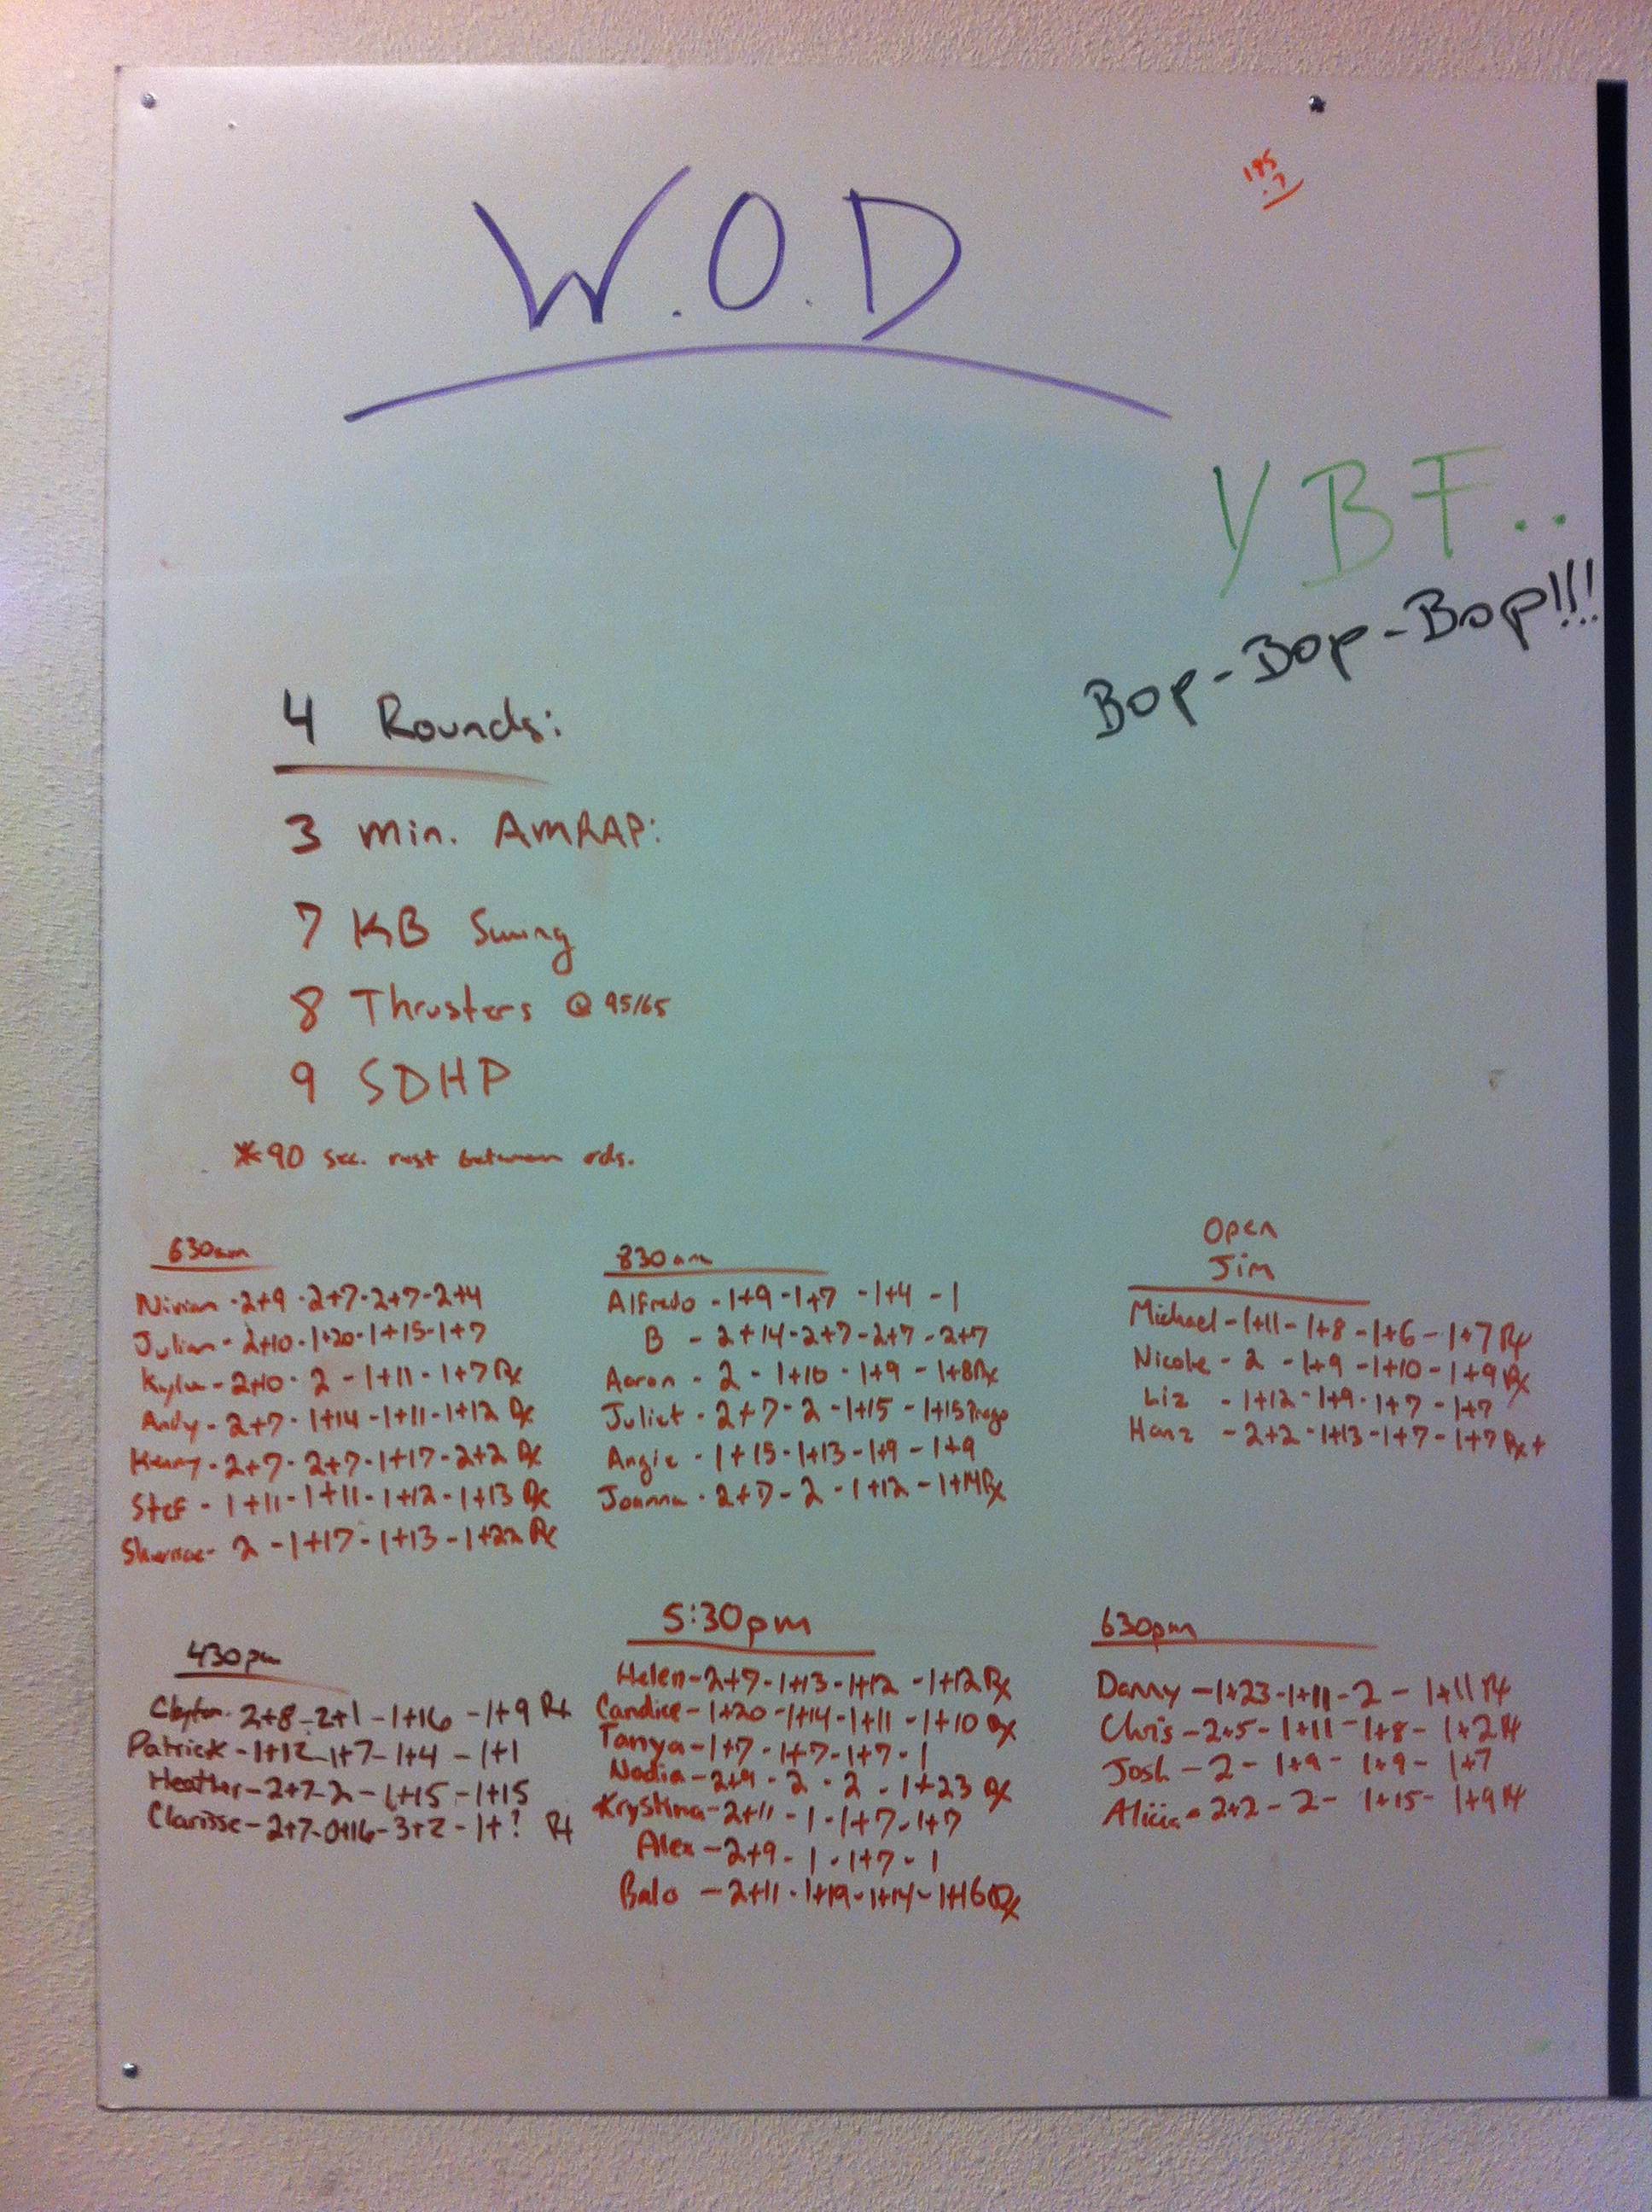 W.O.D
YBF..
Bop-Bop-Bop!!!
4 Rounds:
3 min. AMRAP:
7 KB Swing
8 Thrusters @ 95/65
9 SDHP
*90 sec. rest between rds.
630am
Nivian - 2+9 - 2+7 - 2+7 - 2+4
Julian - 2+10 - 1+20 - 1+15 - 1+7
Kyle - 2+0 - 2 - 1+11 - 1+7 Rx
Andy - 2+7 - 1+14 - 1+11 - 1+12 Rx
Kenny - 2+7 - 2+7 - 1+17 - 2+2 Rx
Stef - 1+11 - 1+11 - 1+12 - 1+13 Rx
2 - 1+17 - 1+13 - 1+22 Rx
830am
Alfredo - 1+9 - 1+7 - 1+4 - 1
B - 2+14 - 2+7 - 2+7 - 2+7
Aaron - 2 - 1+10 - 1+9 - 1+8 Rx
Juliet - 2+7 - 2 - 1+15 - 1+15
Angie - 1+15 - 1+13 - 1+9 - 1+9
Joanna - 2+7 - 2 - 1+12 - 1+14 Rx
Open
Jim
Michael - 1+11 - 1+8 - 1+6 - 1+7 Rx
Nicole - 2 - 1+9 - 1+10 - 1+9 Rx
Liz - 1+12 - 1+9 - 1+7 - 1+7
Hanz - 2+2 - 1+13 - 1+7 - 1+7 Rx+
430pm
Clayton - 2+8 - 2+1 - 1+16 - 1+9 Rx
Patrick - 1+12 - 1+7 - 1+4 - 1+1
Heather - 2+7 - 2 - 1+15 - 1+15
Clarisse - 2+7 - 0+16 - 3+2 - 1+? Rx
5:30pm
Helen - 2+7 - 1+13 - 1+12 - 1+12 Rx
Candice - 1+20 - 1+14 - 1+11 - 1+10 Rx
Tanya - 1+7 - 1+7 - 1+7 - 1
Nadia - 2+9 - 2 - 2 - 1+23 Rx
Krystina - 2+11 - 1 - 1+7 - 1+7
Alex - 2+9 - 1 - 1+7 - 1
Balo - 2+11 - 1+19 - 1+14 - 1+16 Rx
630pm
Danny - 1+23 - 1+11 - 2 - 1+11 Rx
Chris - 2+5 - 1+11 - 1+8 - 1+2 Rx
Josh - 2 - 1+9 - 1+9 - 1+7
Alicia - 2+2 - 2 - 1+15 - 1+9 Rx